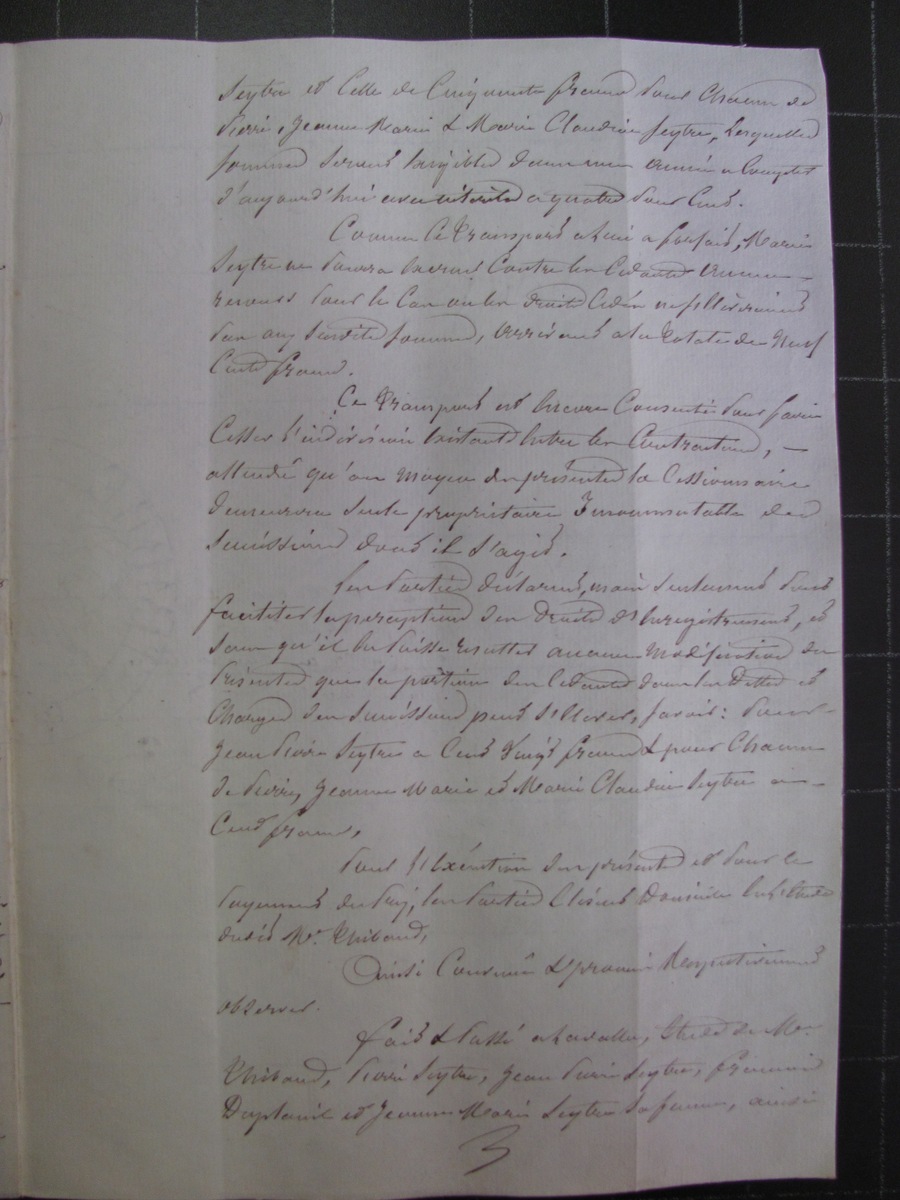 Seytre et Celle de Cinquante francs pour Chacun de
Pierre, Jeanne Marie & Marie Claudine Seytre, lesquelles
sommes seront exigibles dans une année a Compter
d'aujourd'hui avec intérêts a quatre pour Cent.
Comme ce transport a lieu a forfait, Marie
Seytre ne pourra exercer Contre les Cédants aucun
recours pour le Cas ou les droits Cédés ne s'élèveraient
pas aux susdites sommes, arrivant a la totale de Neuf
Cents francs.
Ce transport est encore Consenti pour faire
Cesser l'indivision existante entre les Contractans,
attendu qu'au moyen des présentes la Cessionnaire
demeurera seule propriétaire Incommutable des
successions dont il s'agit.
Les Parties déclarent, mais seulement pour
faciliter la perception des droits d'Enregistrement, et
sans qu'il en puisse résulter aucune Modification des
présentes que la portion des Cédants dans les Dettes et
Charges des successions peut s'élever, savoir: pour
Jean Pierre Seytre a Cent Vingt francs & pour Chacun
de Pierre, Jeanne Marie et Marie Claudine Seytre a
Cent francs,
Pour l'Exécution des présentes et pour le
payement du prix, les Parties Elisent Domicile en l'Etude
dudit Me. Thibaud,
Ainsi Convenu & promis Respectivement
observer.
fait & Passé a Lavalla, Etude de Me.
Thibaud, Pierre Seytre, Jean Pierre Seytre,
et Jeanne Marie Seytre sa femme, ainsi
3